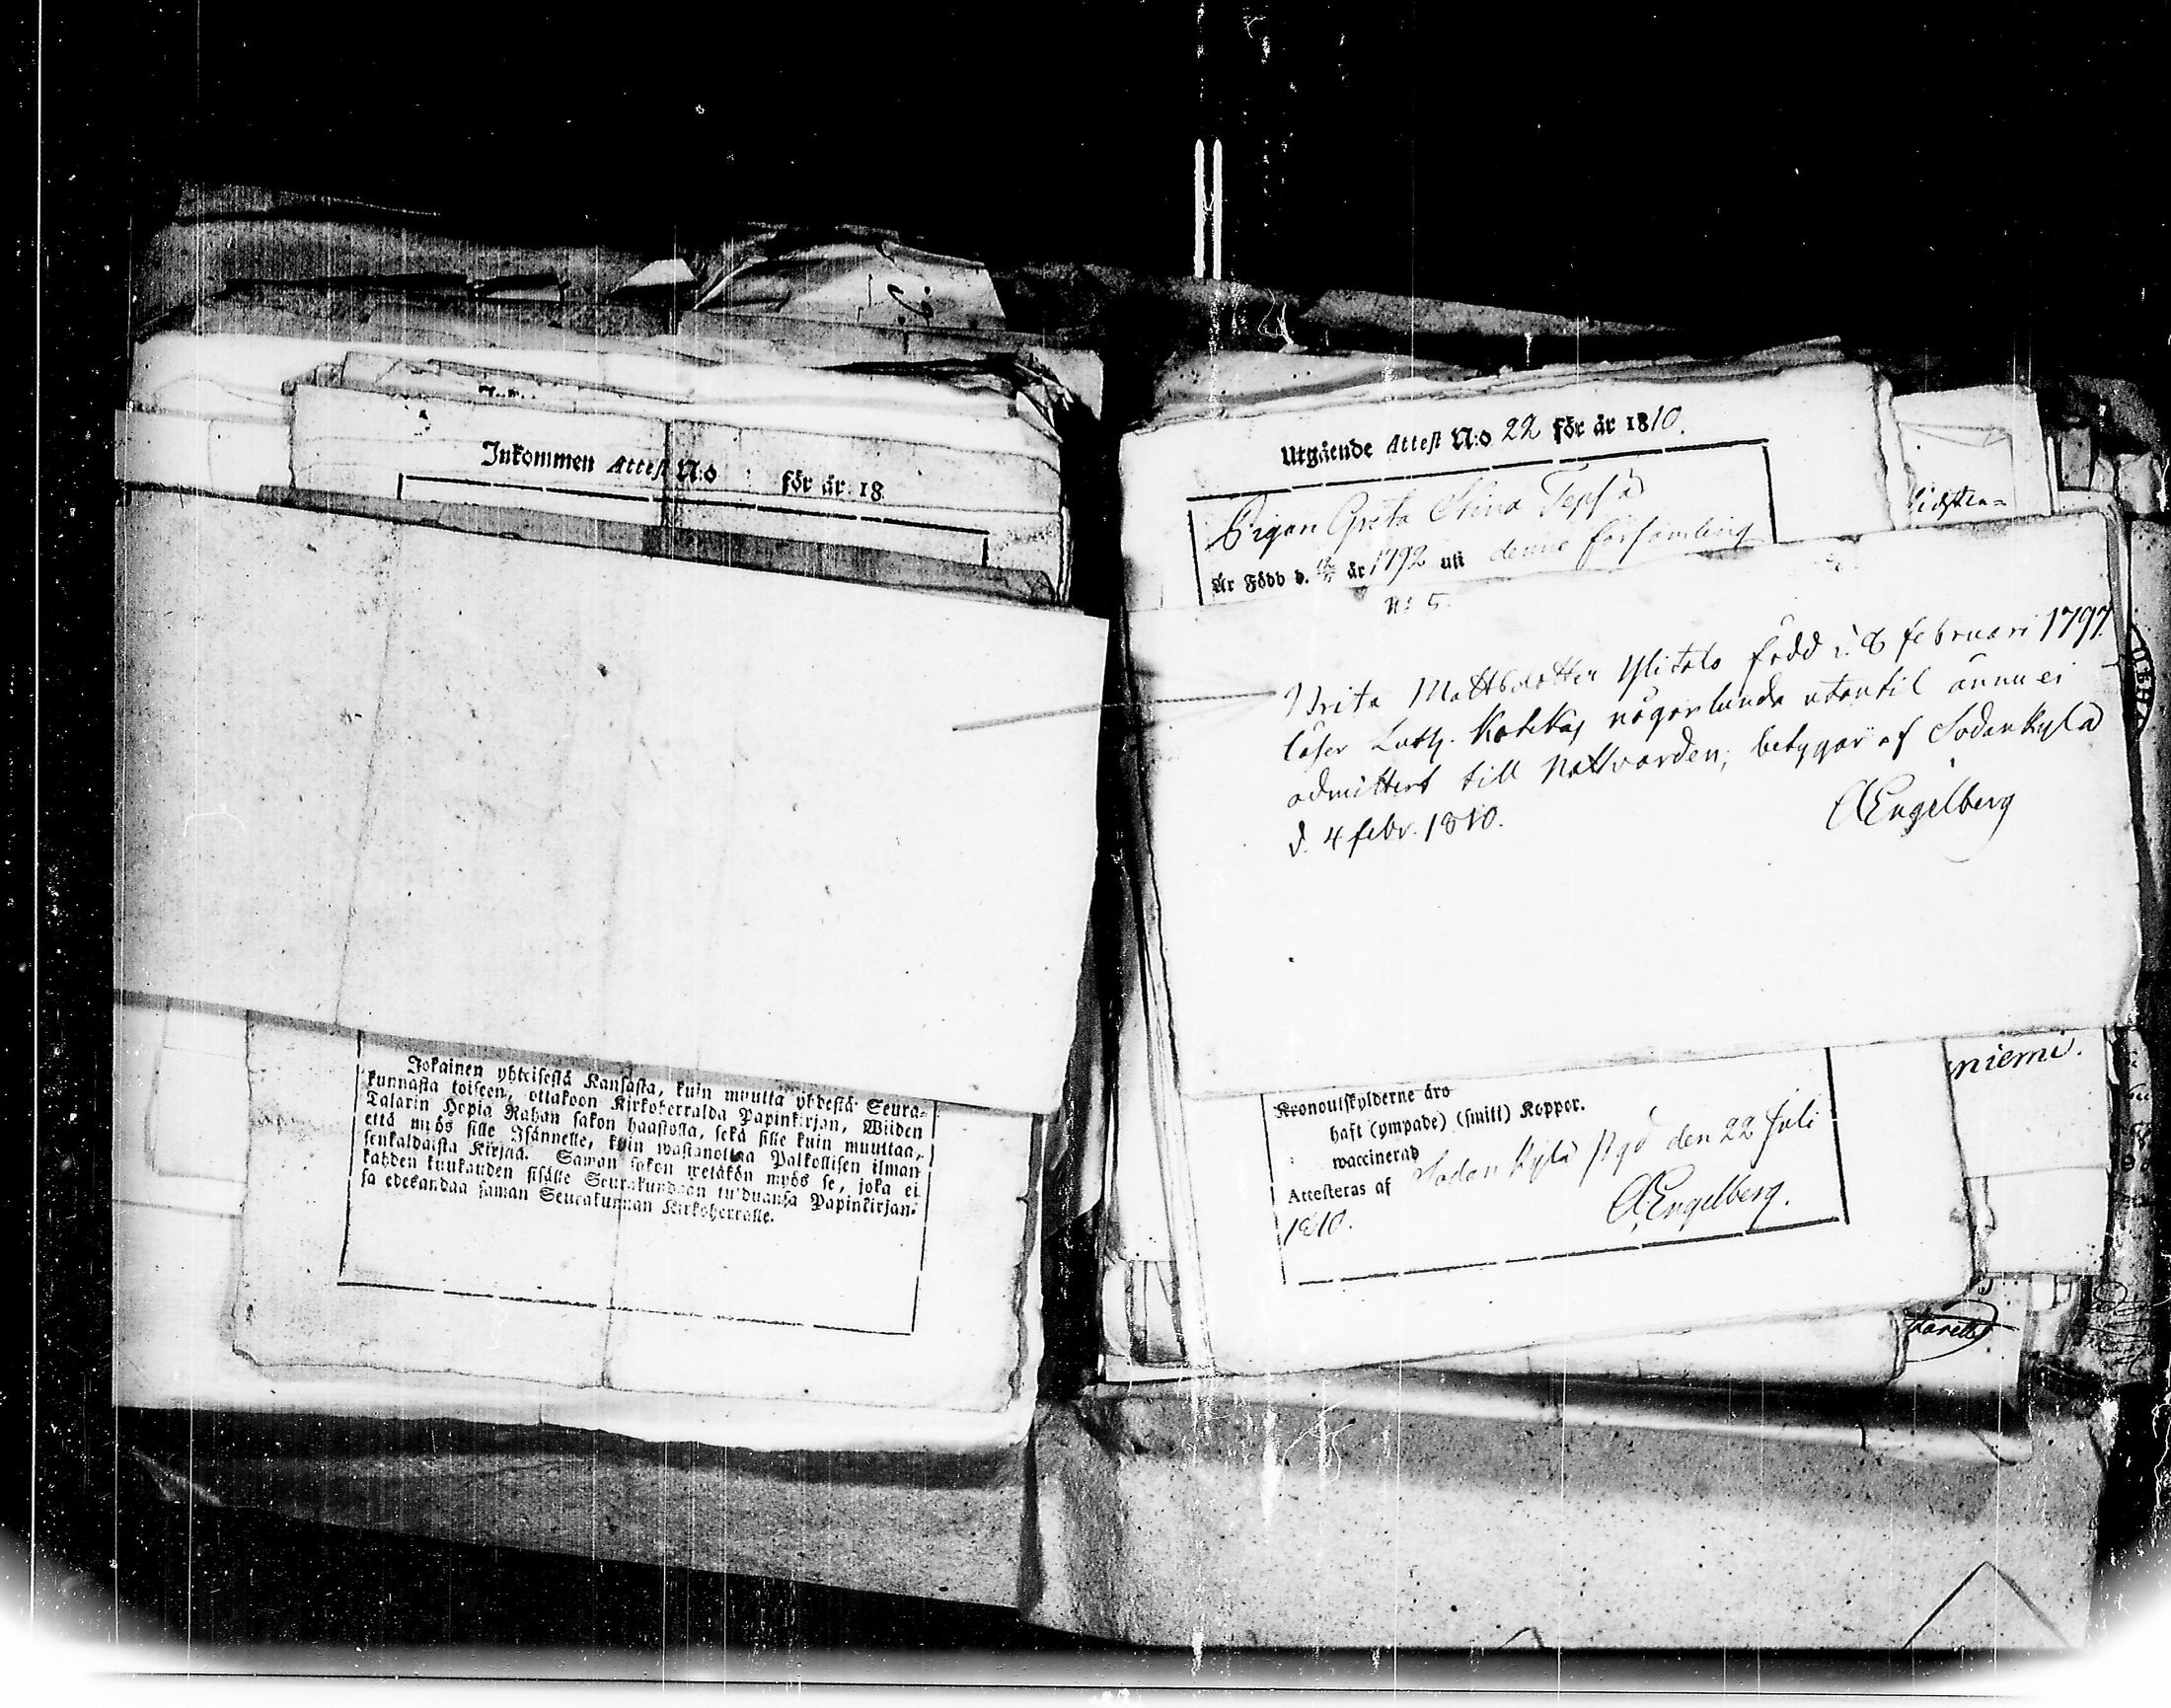 Inkommen Attest N:o för år 18
Jokainen yhteisestä Kansasta, kuin muutta yhdestä Seura-
kunnasta toiseen, ottakoon Kirkoherralda Papinkirjan, Wiiden
Talarin Hopia Rahan sakon haastolla, sekä sille kuin muuttaa,
että myös sille Isännelle, kuin wastanottaa Palkollisen ilman
senkaldaista Kirjaa. Saman sakon wetäkön myös se, joka ei
kahden kuukauden sisälle Seurakundaan tulduansa Papinkirjan-
sa edesandaa saman Seurakunnan Kirkoherralle.
Utgående Attest N:o 22 för år 1810.
Pigan Greta Stina
Är Född d. år 1792 uti denna församling
N: 5.
Brita Mattsdotter Ylitalo född d. 8 februari 1797
läser Luth. Kateks någorlunda utantil ännu ei
admittert till Nattvarden; betygar af Sodankylä
d. 4 febr. 1810. AEngelberg
Kronoutskylderne äro
haft (ympade) (smitt) Koppor.
waccinerad
Attesteras af Sodankylä den 22 Juli
1810. AEngelberg.
niemi.